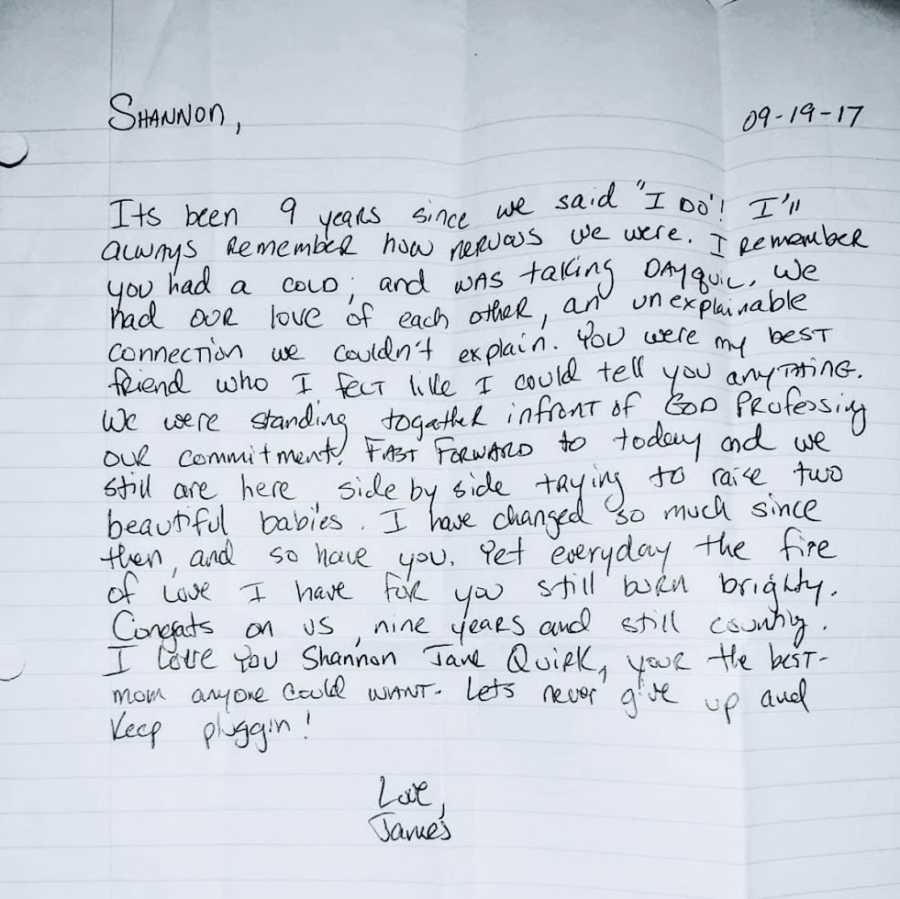 SHANNON,
09-19-17
Its been 9 years since we said "I DO"! I'll
always Remember how nervous we were. I Remember
you had a COLD; and WAS taking DAYquil. We
had OUR love of each other, an unexplainable
connection we couldn't explain. You were my best
friend who I felt like I could tell you anyTHING.
We were standing togather infront of GOD Professing
OUR commitment! FAST FORWARD to today and we
still are here, side by side trying to raise two
beautiful babies. I have changed so much since
then, and so have you. Yet everyday the fire
of love I have for you still burn brighty.
Congats on us, nine years and still counting.
I love You Shannon Jane Quirk, your the best
mom anyone could WANT. Lets never give up and
Keep pluggin!
Love,
James